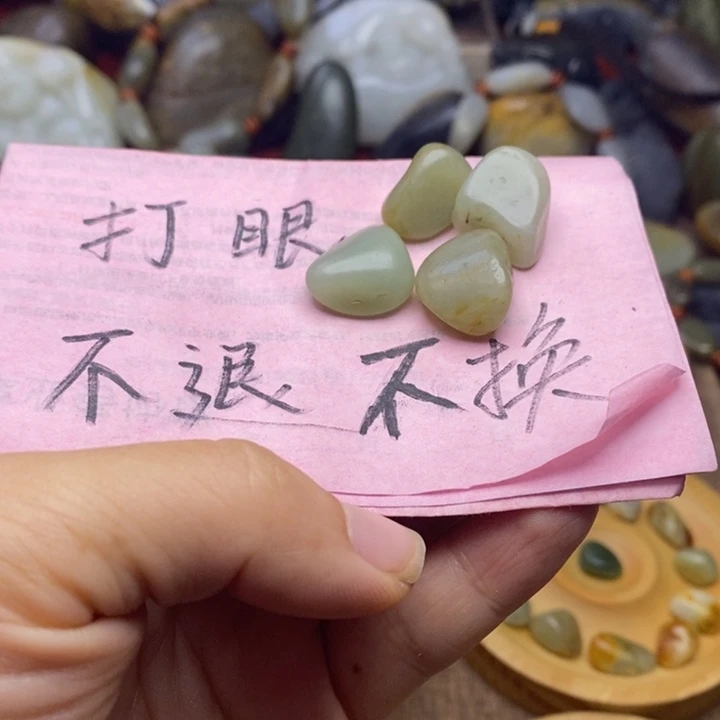 打眼
不退不换